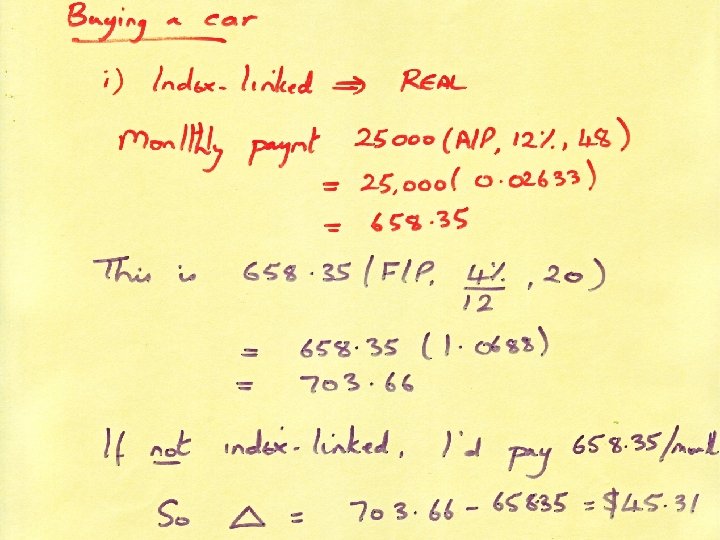 Buying a car
i) Index-linked ⇒ REAL
Monthly paymt 25000 (A/P, 12%, 48)
= 25,000( 0.02633)
= 658.35
This is 658.35 (F/P, 4%/12, 20)
= 658.35 (1.0688)
= 703.66
If not index-linked, I'd pay 658.35/month
So Δ = 703.66 - 658.35 = $45.31